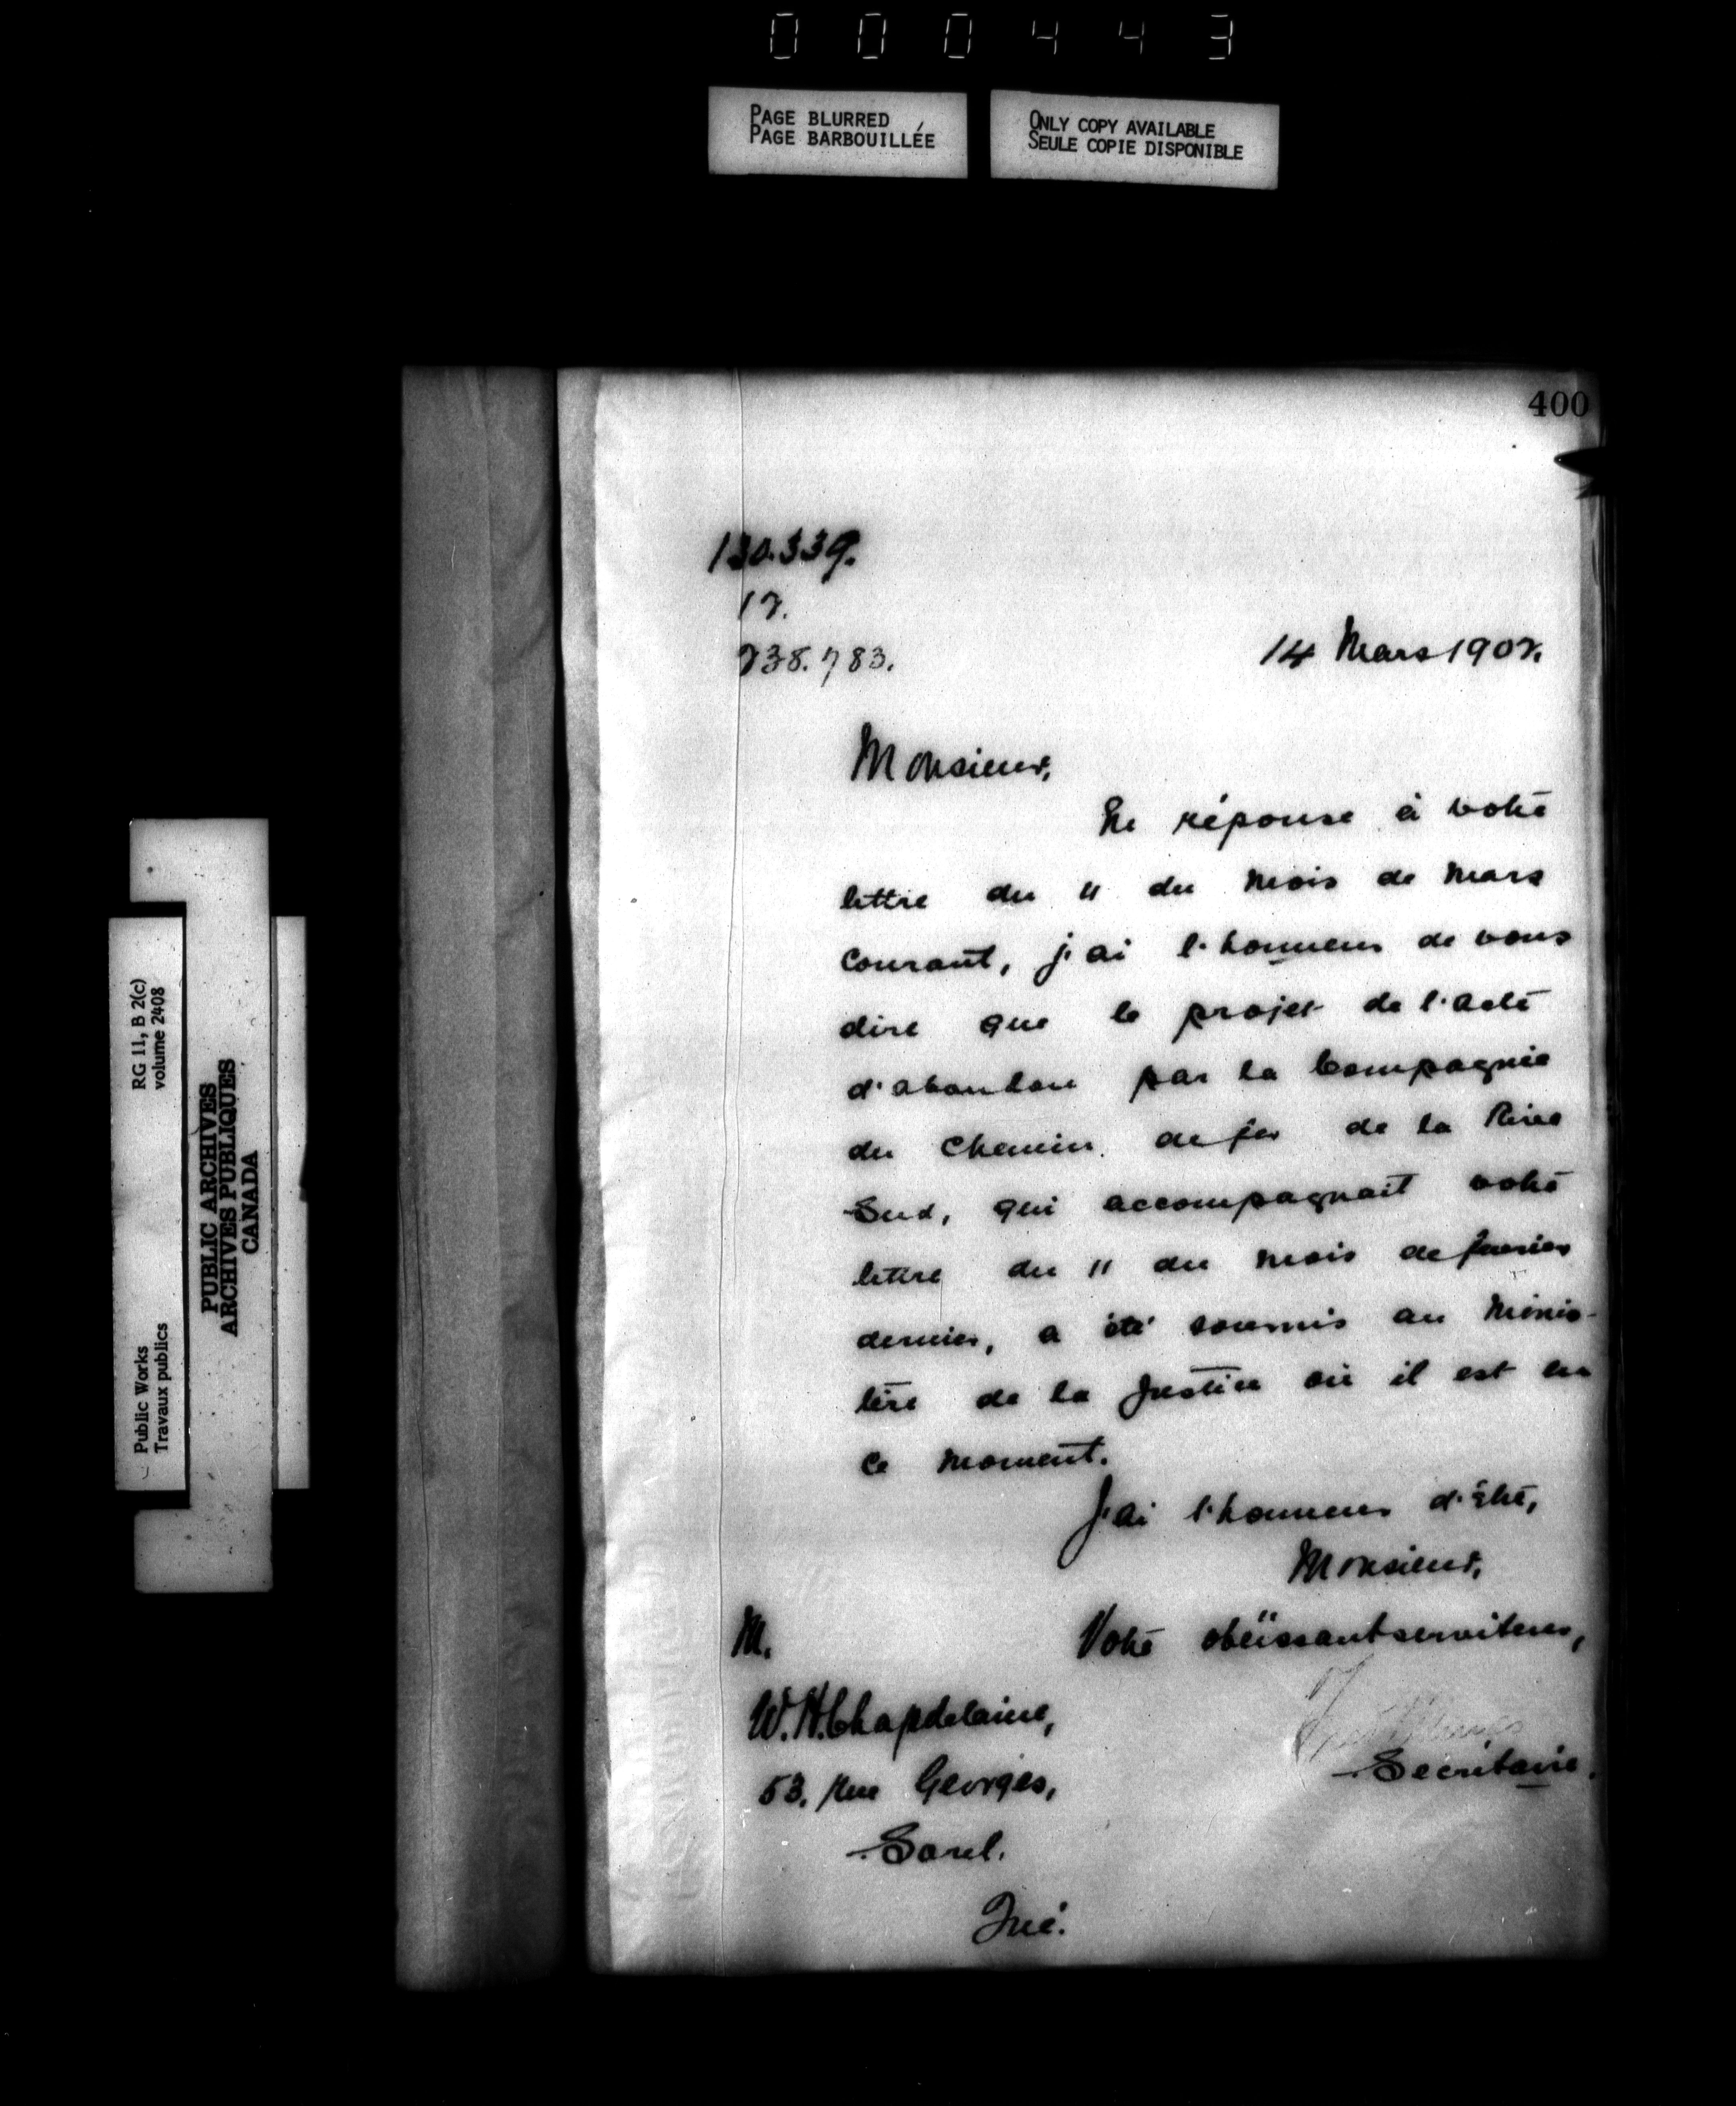 000443
PAGE BLURRED
PAGE BARBOUILLÉE
ONLY COPY AVAILABLE
SEULE COPIE DISPONIBLE
400
130.339.
12.
238.783.
14 Mars 1902.
Monsieur,
En réponse à votre
lettre du 11 du mois de Mars
courant, j'ai l'honneur de vous
dire que le projet de l'acte
d'abandon par la Compagnie
du Chemin de fer de la Rive
Sud, qui accompagnait votre
lettre du 11 du mois de février
dernier, a été soumis au Minis-
tère de la Justice où il est en
ce moment.
J'ai l'honneur d'être,
Monsieur,
Votre obéissant serviteur,
Secrétaire.
M.
W. H. Chapdelaine,
53, rue Georges,
Sorel.
Qué.
RG 11, B 2(c)
volume 2408
Public Works
Travaux publics
PUBLIC ARCHIVES
ARCHIVES PUBLIQUES
CANADA